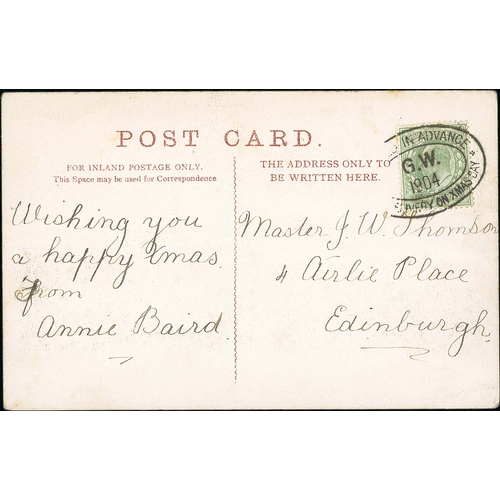 POST CARD.
FOR INLAND POSTAGE ONLY.
This Space may be used for Correspondence
THE ADDRESS ONLY TO
BE WRITTEN HERE.
Wishing you
a happy Xmas.
from
Annie Baird.
Master J. W. Thomson
4 Airlie Place
Edinburgh.
IN ADVANCE
G.W.
1904
ON XMAS DAY